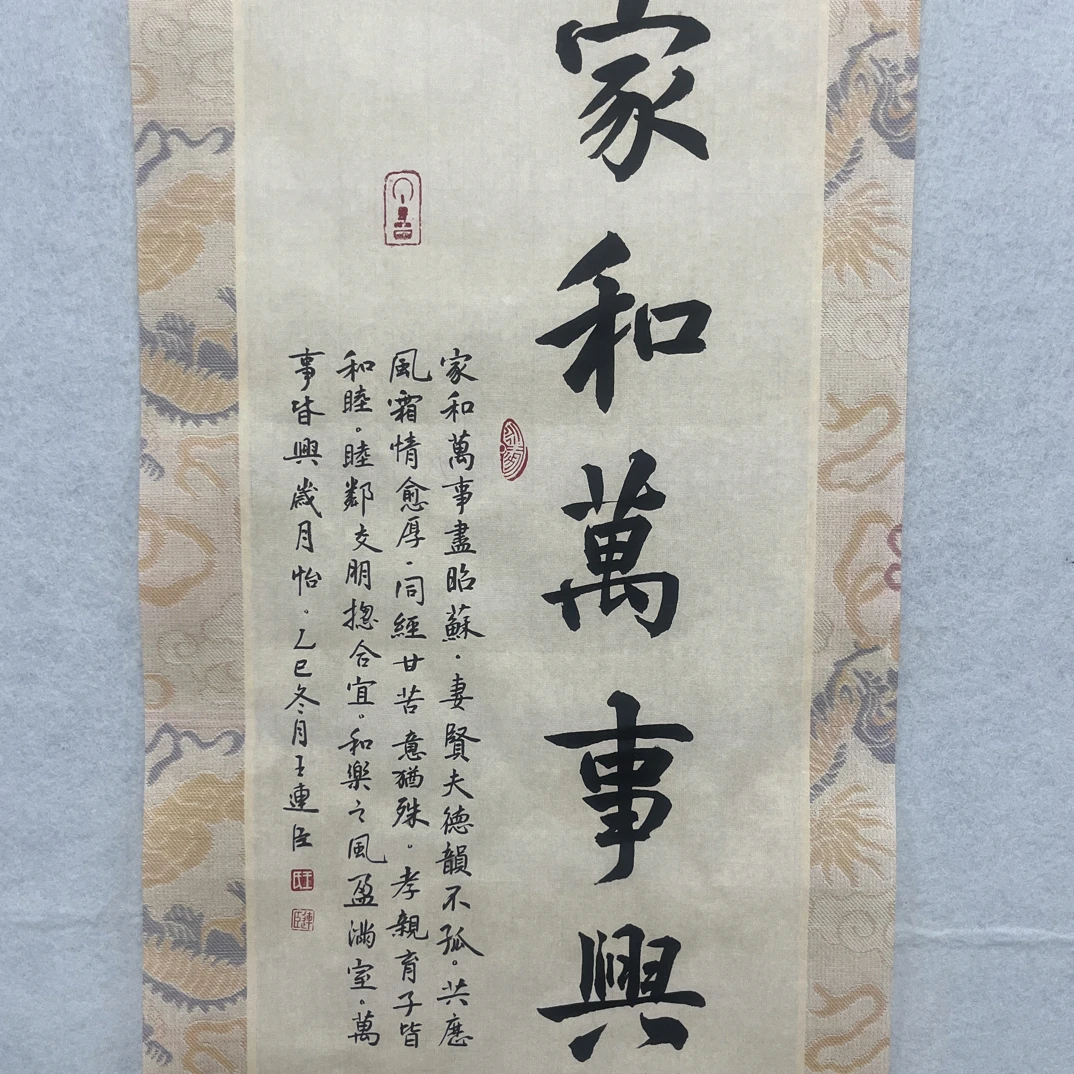 家和萬事興
家和萬事盡昭蘇．妻賢夫德韻不孤。共歷
風霜情愈厚．同經甘苦意猶殊。孝親育子皆
和睦。睦鄰交朋揔合宜。和樂之風盈滿室。萬
事皆興歲月怡。乙巳冬月王連臣
王氏
連臣